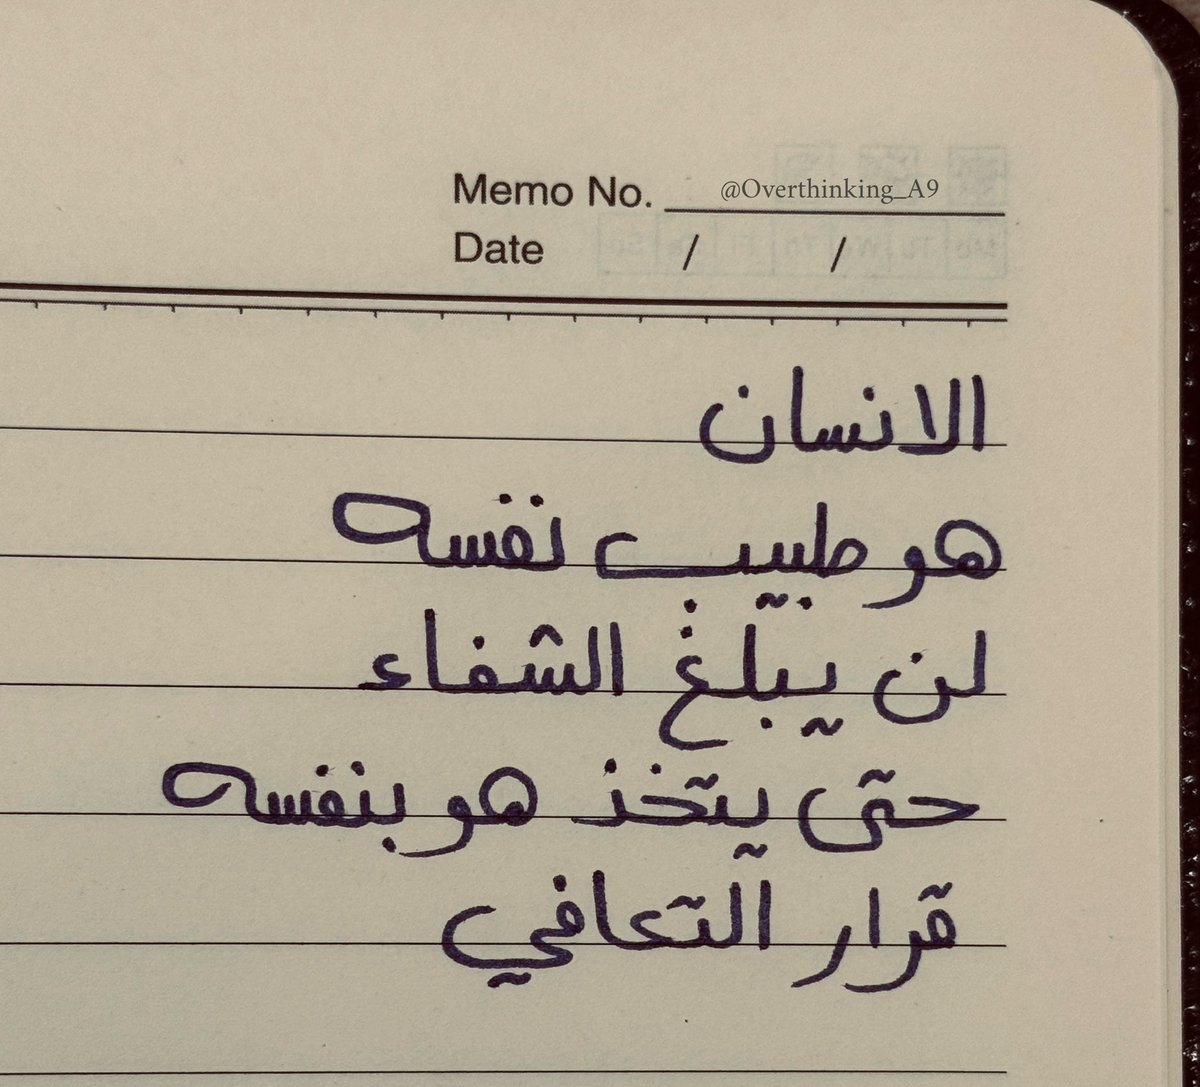 Memo No. @Overthinking_A9
Date / /
الانسان
هو طبيب نفسه
لن يبلغ الشفاء
حتى يتخذ هو بنفسه
قرار التعافي